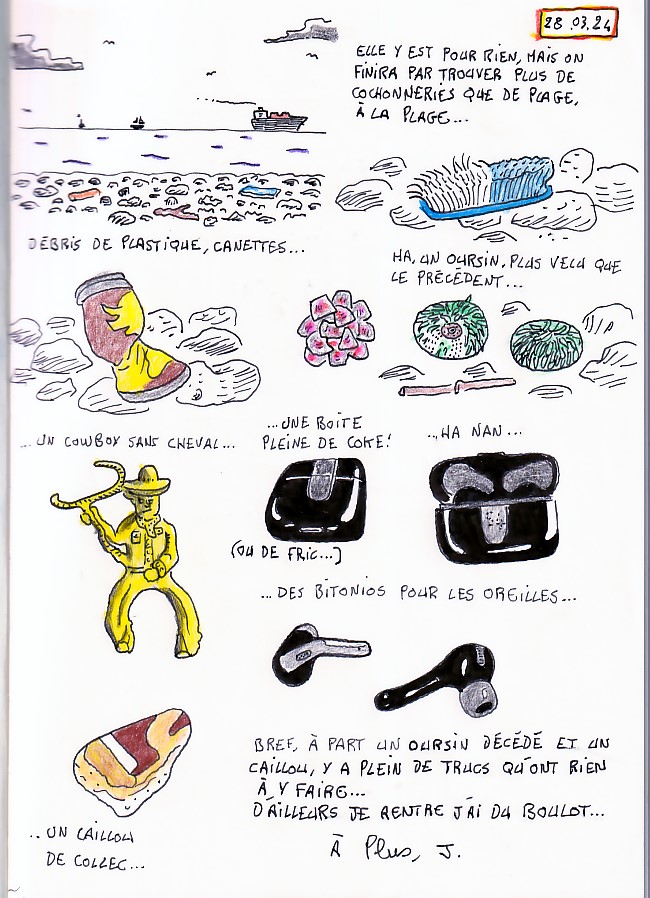 28.03.24
ELLE Y EST POUR RIEN, MAIS ON
FINIRA PAR TROUVER PLUS DE
COCHONNERIES QUE DE PLAGE,
À LA PLAGE...
DÉBRIS DE PLASTIQUE, CANETTES...
HA, UN OURSIN, PLUS VELU QUE
LE PRÉCÉDENT...
...UN COWBOY SANS CHEVAL...
...UNE BOITE
PLEINE DE COKE!
...HA NAN...
(OU DE FRIC...)
...DES BITONIOS POUR LES OREILLES...
BREF, À PART UN OURSIN DÉCÉDÉ ET UN
CAILLOU, Y A PLEIN DE TRUCS QU'ONT RIEN
À Y FAIRE...
D'AILLEURS JE RENTRE J'AI DU BOULOT...
À Plus, J.
...UN CAILLOU
DE COLLEC...